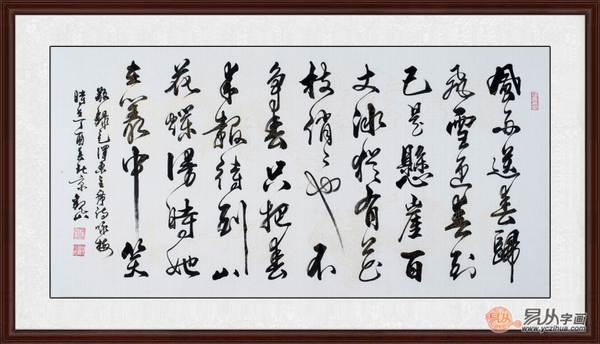 風雨送春歸
飛雪迎春到
已是懸崖百
丈冰猶有花
枝俏〻也不
争春只把春
来報待到山
花爛漫時她
在叢中笑
敬錄毛澤東主席詩詠梅
時在丁酉夏北京
易从字画
www.yczihua.com